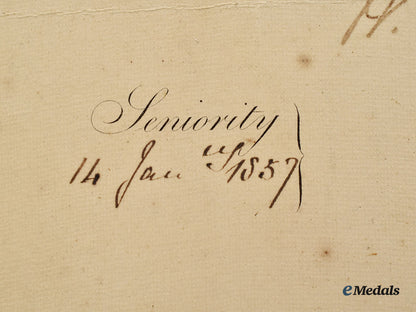 H.
Seniority
14 Jan ry 1857
eMedals